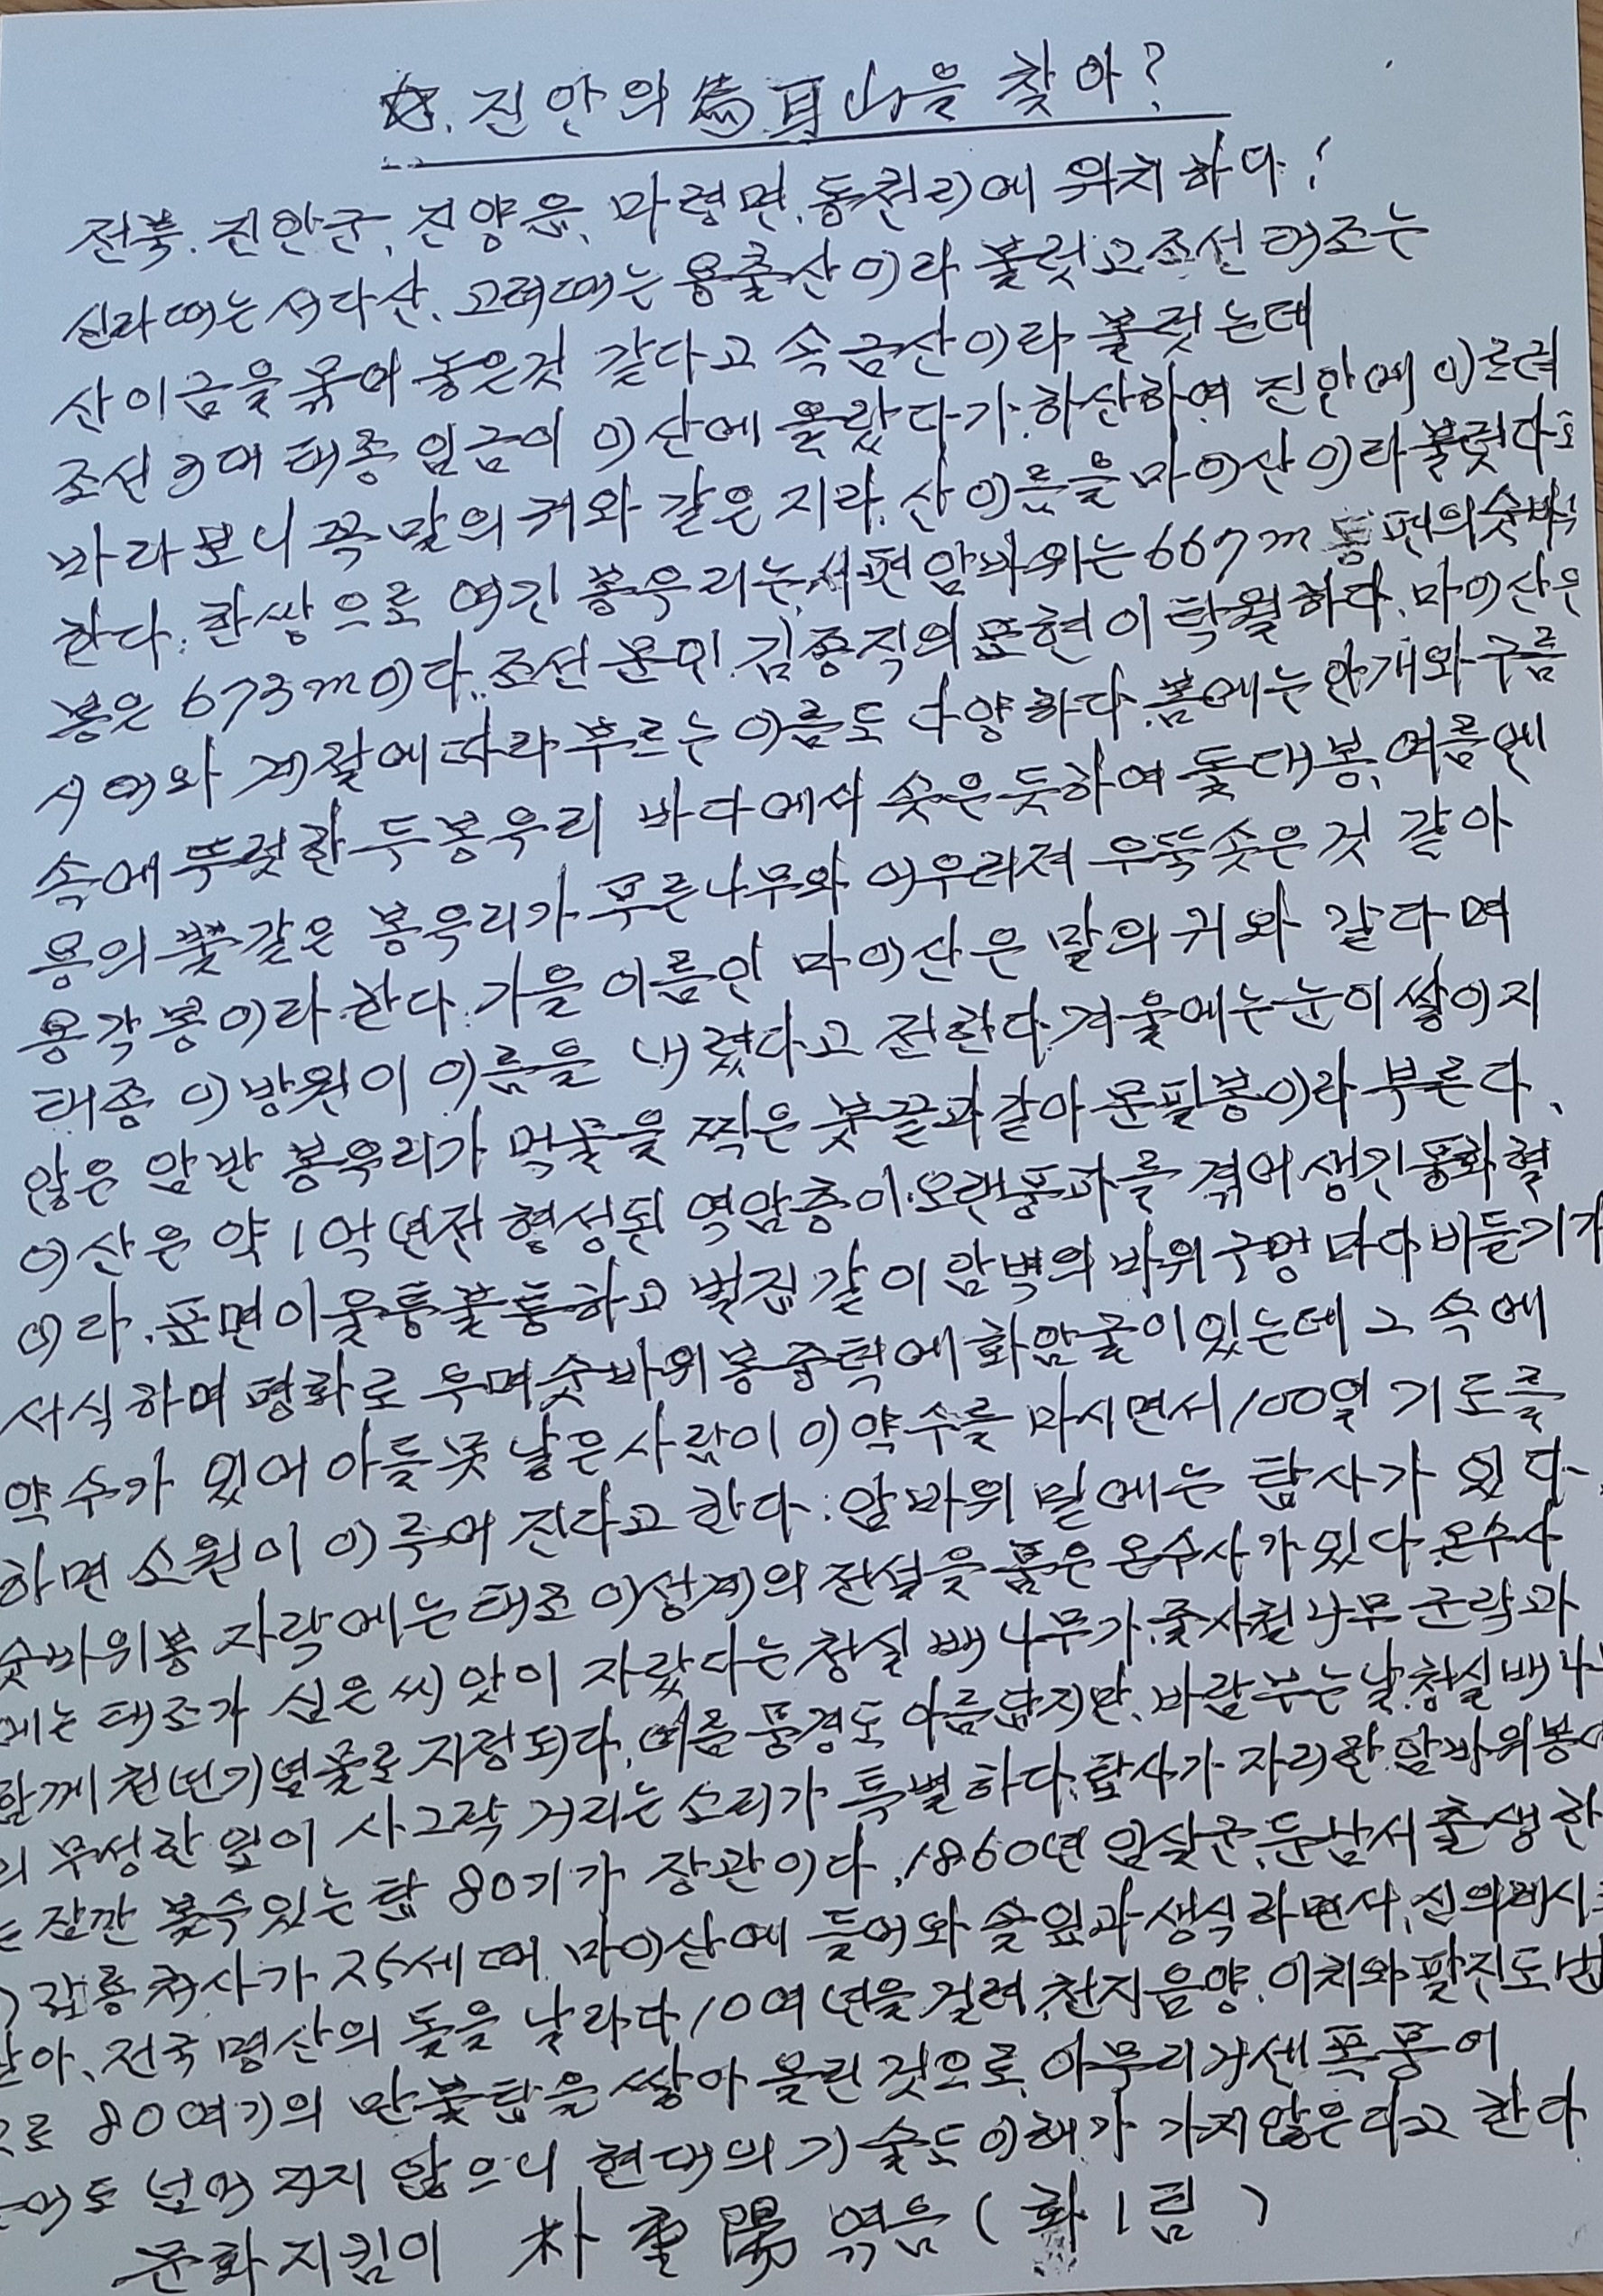 ☆. 진안의 馬耳山을 찾아?
전북. 진안군, 진양읍, 마령면, 동천리에 위치하다!
신라때는 서다산, 고려때는 용출산이라 불렀고 조선 태조는
산이금을 묶어 놓은것 같다고 속금산이라 불렀는데
조선 3대 태종 임금이 이산에 올랐다가 하산하여 진안에 이르러
바라보니 꼭 말의 귀와 같은 지라, 산이름을 마이산이라 불렀다고
한다. 한쌍으로 여긴 봉우리는, 서편 암바위는 667m 동편의 숫바위
봉은 673m이다. 조선 문인. 김종직의 표현이 탁월하다. 마이산은
시어와 계절에 따라 부르는 이름도 다양하다. 봄에는 안개와 구름
속에 뚜렷한 두봉우리 바다에서 솟은 듯하여 돛대봉, 여름엔
용의 뿔같은 봉우리가 푸른나무와 어우러져 우뚝솟은 것 같아
용각봉이라 한다. 가을 이름인 마이산은 말의 귀와 같다며
태종 이방원이 이름을 내렸다고 전한다. 겨울에는 눈이 쌓이지
않은 암반 봉우리가 먹물을 찍은 붓끝과 같아 문필봉이라 부른다.
이산은 약 1억년전 형성된 역암층이 오랜풍파를 겪어 생긴 풍화혈
이라. 표면이 울퉁불퉁하고 벌집같이 암벽의 바위 구멍 마다 비들기가
서식하며 평화로 우며 숫바위봉 중턱에 화암굴이 있는데 그 속에
약수가 있어 아들못 낳은 사람이 이 약수를 마시면서 100일 기도를
하면 소원이 이루어 진다고 한다. 암바위 밑에는 탑사가 있다.
숫바위봉 자락에는 태조 이성계의 전설을 품은 은수사가 있다. 은수사
에는 태조가 심은 씨앗이 자랐다는 청실배나무가, 줄사철나무 군락과
함께 천년기념물로 지정되다. 여름 풍경도 아름답지만, 바람부는날, 청실배나무
의 무성한 잎이 사그락 거리는 소리가 특별하다. 탑사가 자리한, 암바위봉에
는 잠깐 볼수있는 탑 80기가 장관이다. 1860년 임실군, 둔남서 출생한
갑룡 처사가 25세때 마이산에 들어와 솔잎과 생식하면서, 신의계시
받아, 전국 명산의 돌을 날라다 10여년을 걸려, 천지음양, 이치와 팔진도법
으로 80여기의 만불탑을 쌓아 올린 것으로, 아무리 거센 폭풍에
도 넘어 지지 않으니 현대의 기술도 이해가 가지 않은다고 한다
문화지킴이 朴重陽 엮음 ( 화 1 림 )